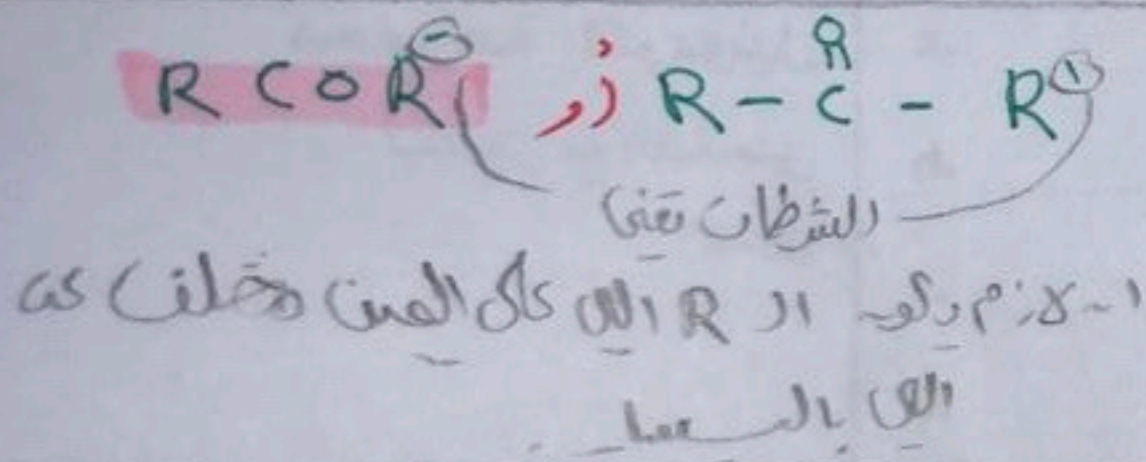 R C O R⁻ أو R - C - R'
R
الشرطات تعني
١- لازم يكون الـ R اللي على اليمين مختلف عن
اللي باليسار.